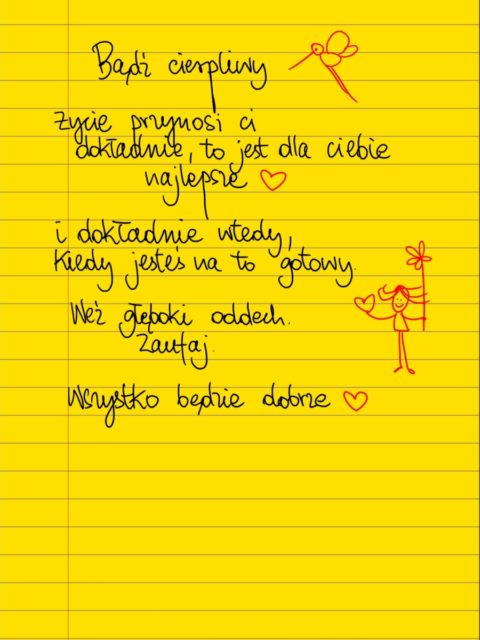 Bądź cierpliwy
Życie przynosi ci
dokładnie, to jest dla ciebie
najlepsze
i dokładnie wtedy,
kiedy jesteś na to gotowy.
Weź głęboki oddech.
Zaufaj.
Wszystko będzie dobrze